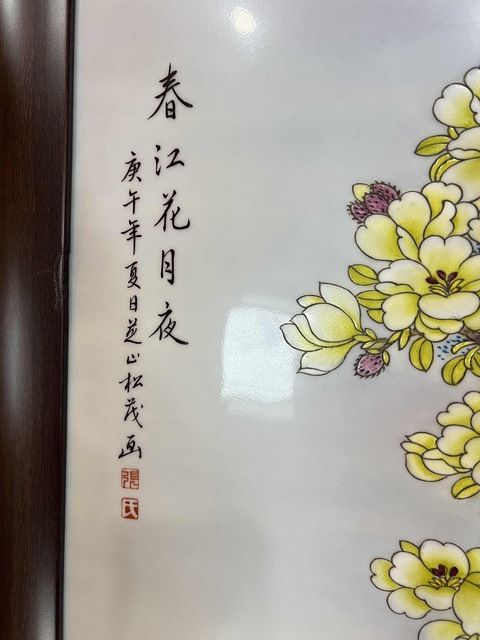 春江花月夜
庚午年夏日芝山松茂画
張
氏